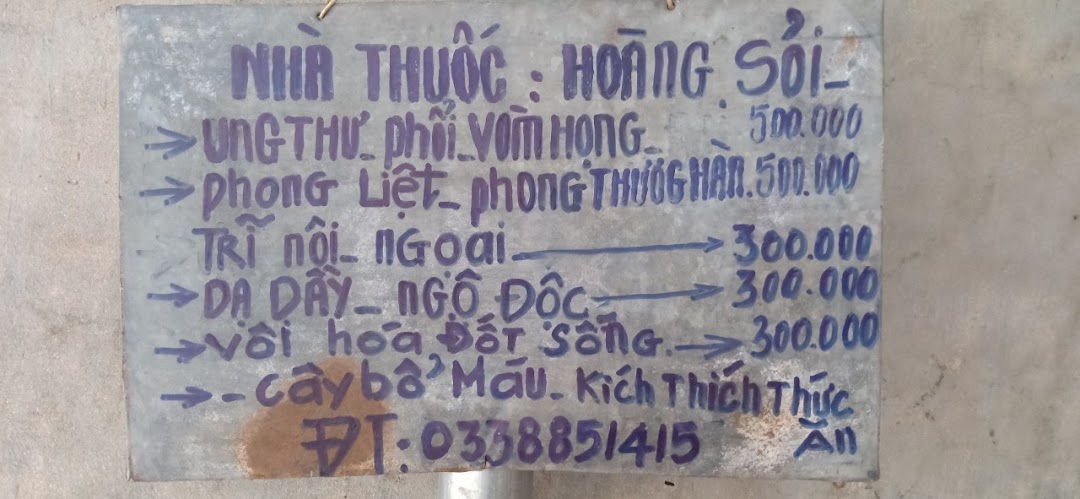 NHÀ THUỐC : HOÀNG SỎI
→ UNG THƯ - phổi - VÒM HỌNG - 500.000
→ phong Liệt - phong THƯƠG HÀN. 500.000
TRĨ nội - NGOẠI → 300.000
→ DẠ DẦY - NGỘ ĐỘC → 300.000
→ vôi hóa ĐốT SốNG. → 300.000
→ - cây bổ Máu - Kích Thích Thức Ăn
ĐT: 0338851415